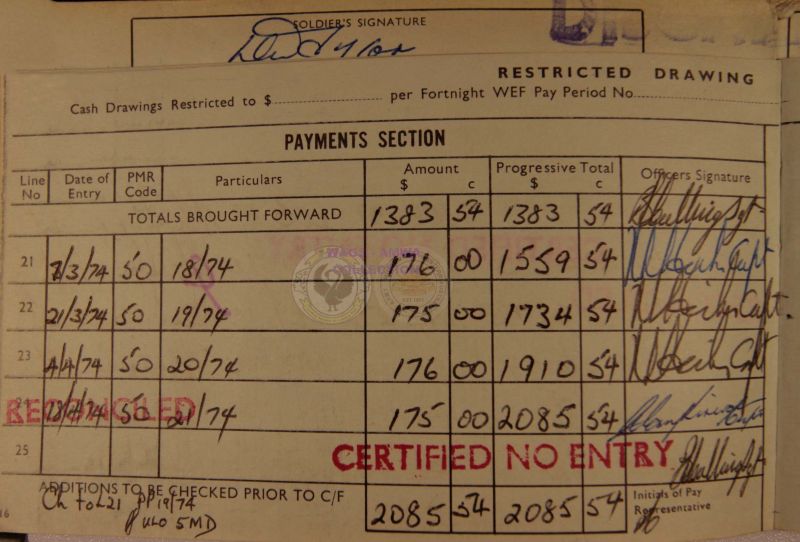 SOLDIER'S SIGNATURE
RESTRICTED DRAWING
Cash Drawings Restricted to $ per Fortnight WEF Pay Period No
PAYMENTS SECTION
Line No Date of Entry PMR Code Particulars Amount $ c Progressive Total $ c Officers Signature
TOTALS BROUGHT FORWARD 1383 54 1383 54
WAGS - ANWA COLLECTION
21 7/3/74 50 18/74 176 00 1559 54
22 21/3/74 50 19/74 175 00 1734 54
23 4/4/74 50 20/74 176 00 1910 54
RECONCILED 50 21/74 175 00 2085 54
25 CERTIFIED NO ENTRY
ADDITIONS TO BE CHECKED PRIOR TO C/F 2085 54 2085 54 Initials of Pay Representative
19/74
5MD
16